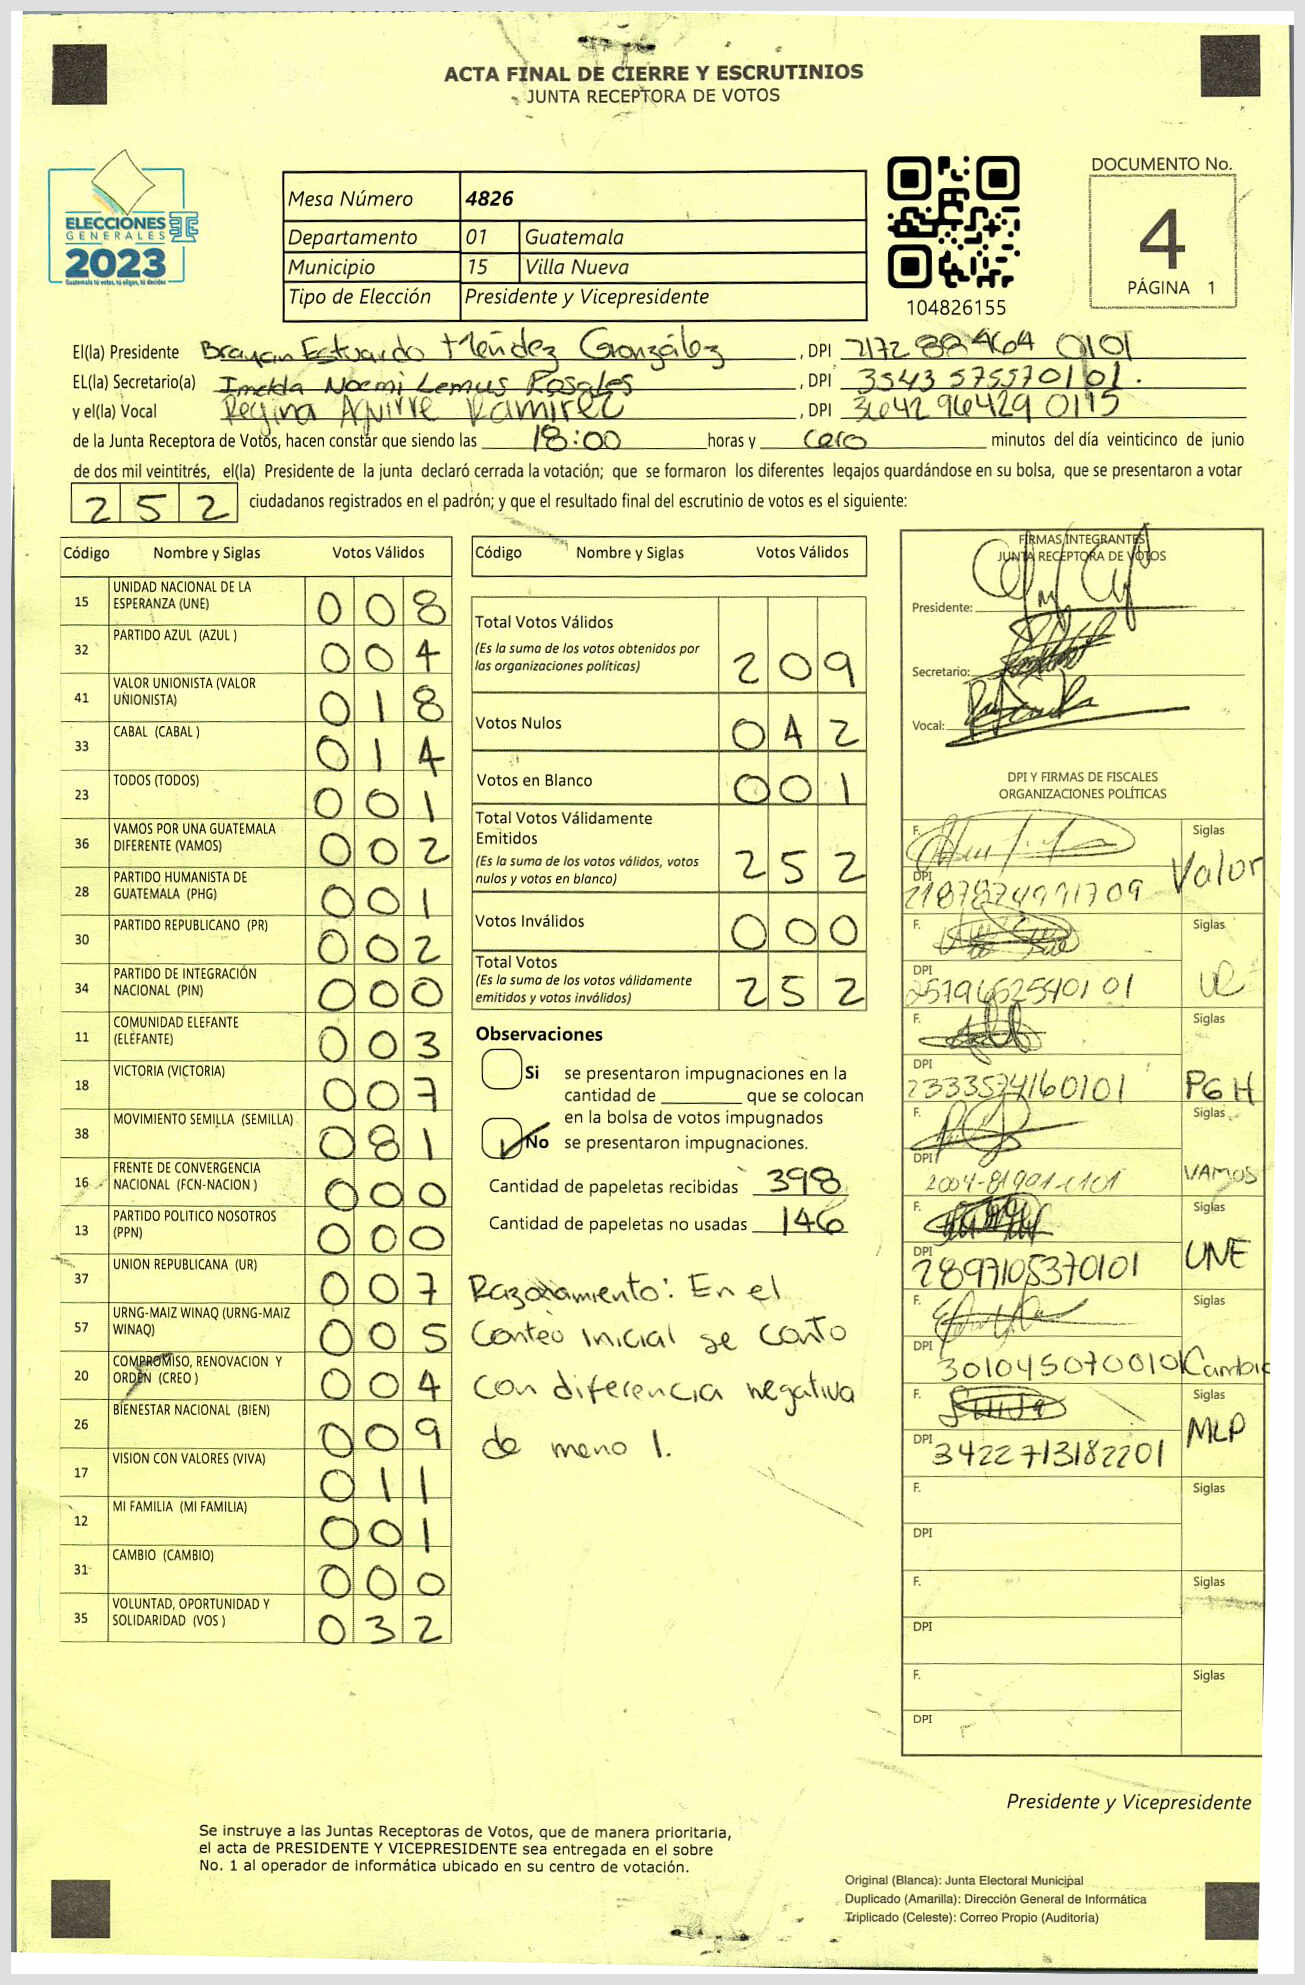 ACTA FINAL DE CIERRE Y ESCRUTINIOS
JUNTA RECEPTORA DE VOTOS
ELECCIONES
GENERALES
2023
Guatemala tú votas, tú eliges, tú decides
Mesa Número 4826
Departamento 01 Guatemala
Municipio 15 Villa Nueva
Tipo de Elección Presidente y Vicepresidente
104826155
DOCUMENTO No.
4
PÁGINA 1
El(la) Presidente Brayan Estuardo Méndez González, DPI 2172 88464 0101
EL(la) Secretario(a) Imelda Noemi Lemus Rosales, DPI 3543 57557 0101.
y el(la) Vocal Regina Aguirre Ramirez, DPI 3642 96429 0115
de la Junta Receptora de Votos, hacen constar que siendo las 18:00 horas y cero minutos del día veinticinco de junio
de dos mil veintitrés, el(la) Presidente de la junta declaró cerrada la votación; que se formaron los diferentes legajos guardándose en su bolsa, que se presentaron a votar
252 ciudadanos registrados en el padrón; y que el resultado final del escrutinio de votos es el siguiente:
Código Nombre y Siglas Votos Válidos
15 UNIDAD NACIONAL DE LA ESPERANZA (UNE) 008
32 PARTIDO AZUL (AZUL ) 004
41 VALOR UNIONISTA (VALOR UNIONISTA) 018
33 CABAL (CABAL ) 014
23 TODOS (TODOS) 001
36 VAMOS POR UNA GUATEMALA DIFERENTE (VAMOS) 002
28 PARTIDO HUMANISTA DE GUATEMALA (PHG) 001
30 PARTIDO REPUBLICANO (PR) 002
34 PARTIDO DE INTEGRACIÓN NACIONAL (PIN) 000
11 COMUNIDAD ELEFANTE (ELEFANTE) 003
18 VICTORIA (VICTORIA) 007
38 MOVIMIENTO SEMILLA (SEMILLA) 081
16 FRENTE DE CONVERGENCIA NACIONAL (FCN-NACION ) 000
13 PARTIDO POLITICO NOSOTROS (PPN) 000
37 UNION REPUBLICANA (UR) 007
57 URNG-MAIZ WINAQ (URNG-MAIZ WINAQ) 005
20 COMPROMISO, RENOVACION Y ORDEN (CREO ) 004
26 BIENESTAR NACIONAL (BIEN) 009
17 VISION CON VALORES (VIVA) 011
12 MI FAMILIA (MI FAMILIA) 001
31 CAMBIO (CAMBIO) 000
35 VOLUNTAD, OPORTUNIDAD Y SOLIDARIDAD (VOS ) 032
Código Nombre y Siglas Votos Válidos
Total Votos Válidos 209
(Es la suma de los votos obtenidos por
las organizaciones políticas)
Votos Nulos 042
Votos en Blanco 001
Total Votos Válidamente
Emitidos 252
(Es la suma de los votos válidos, votos
nulos y votos en blanco)
Votos Inválidos 000
Total Votos 252
(Es la suma de los votos válidamente
emitidos y votos inválidos)
Observaciones
Si se presentaron impugnaciones en la
cantidad de ________ que se colocan
en la bolsa de votos impugnados
No se presentaron impugnaciones.
Cantidad de papeletas recibidas 398
Cantidad de papeletas no usadas 146
Razonamiento: En el
Conteo inicial se conto
con diferencia negativa
de meno 1.
FIRMAS INTEGRANTES
JUNTA RECEPTORA DE VOTOS
Presidente:
Secretario:
Vocal:
DPI Y FIRMAS DE FISCALES
ORGANIZACIONES POLÍTICAS
F. Siglas
Valor
DPI
F. Siglas
UR
DPI
F. Siglas
DPI 2333574160101 PGH
F. Siglas
DPI VAMOS
F. Siglas
DPI 2897105370101 UNE
F. Siglas
DPI 3010450700101 Cambio
F. Siglas
DPI 3422713182201 MLP
F. Siglas
DPI
F. Siglas
DPI
F. Siglas
DPI
Presidente y Vicepresidente
Se instruye a las Juntas Receptoras de Votos, que de manera prioritaria,
el acta de PRESIDENTE Y VICEPRESIDENTE sea entregada en el sobre
No. 1 al operador de informática ubicado en su centro de votación.
Original (Blanca): Junta Electoral Municipal
Duplicado (Amarilla): Dirección General de Informática
Triplicado (Celeste): Correo Propio (Auditoría)